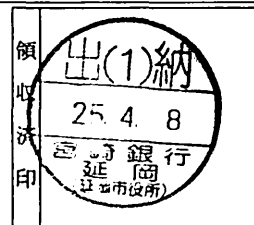 領収済印
出(1)納
25.4.8
宮崎銀行
延岡
(延岡市役所)